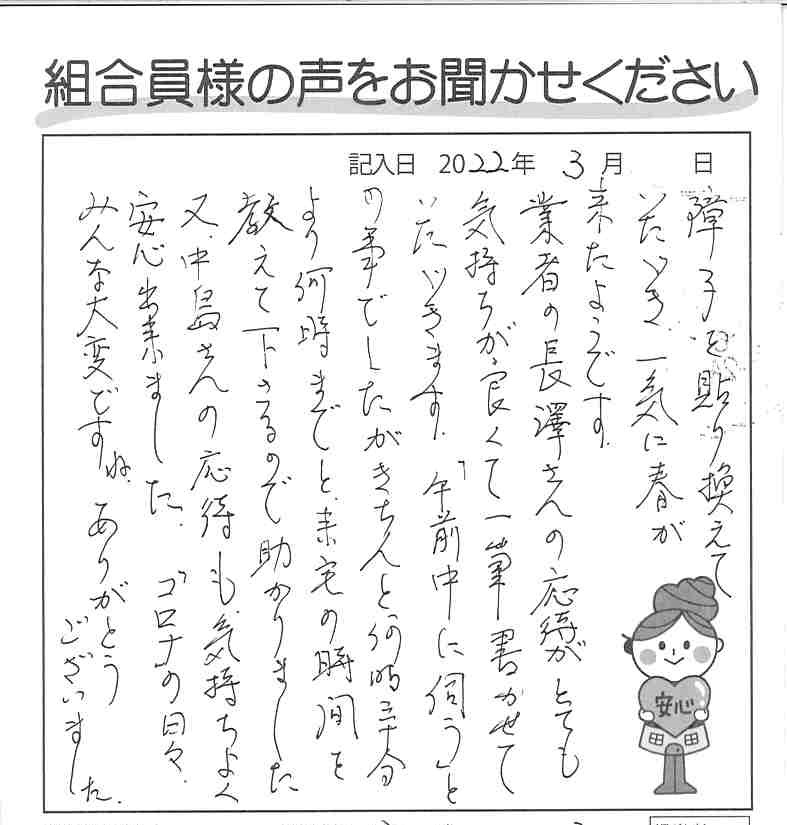 組合員様の声をお聞かせください
記入日 2022年 3月 日
障子を貼り換えて
いただき、一気に春が
来たようです。
業者の長澤さんの応待がとても
気持ちが良くて一筆書かせて
いただきます。「午前中に伺う」と
の事でしたがきちんと何時三十分
より何時までと、来宅の時間を
教えて下さるので助かりました
又、中島さんの応待も、気持ちよく
安心出来ました。「コロナ」の日々、
みんな大変ですね。ありがとう
ございました。
安心